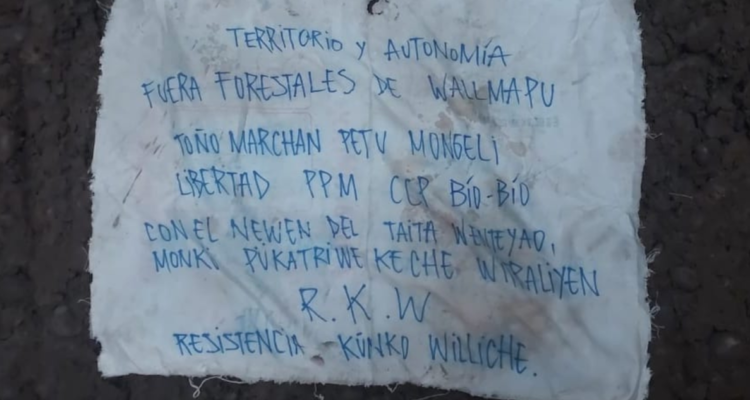 TERRITORIO Y AUTONOMÍA
FUERA FORESTALES DE WALLMAPU
TOÑO MARCHAN PETU MONGELI
LIBERTAD PPM CCP BÍO-BÍO
CON EL NEWEN DEL TAITA WENTEYAO,
MONKI PÜKATRIWEKECHE WIRALIYEN
R.K.W
RESISTENCIA KÜNKO WILLICHE.